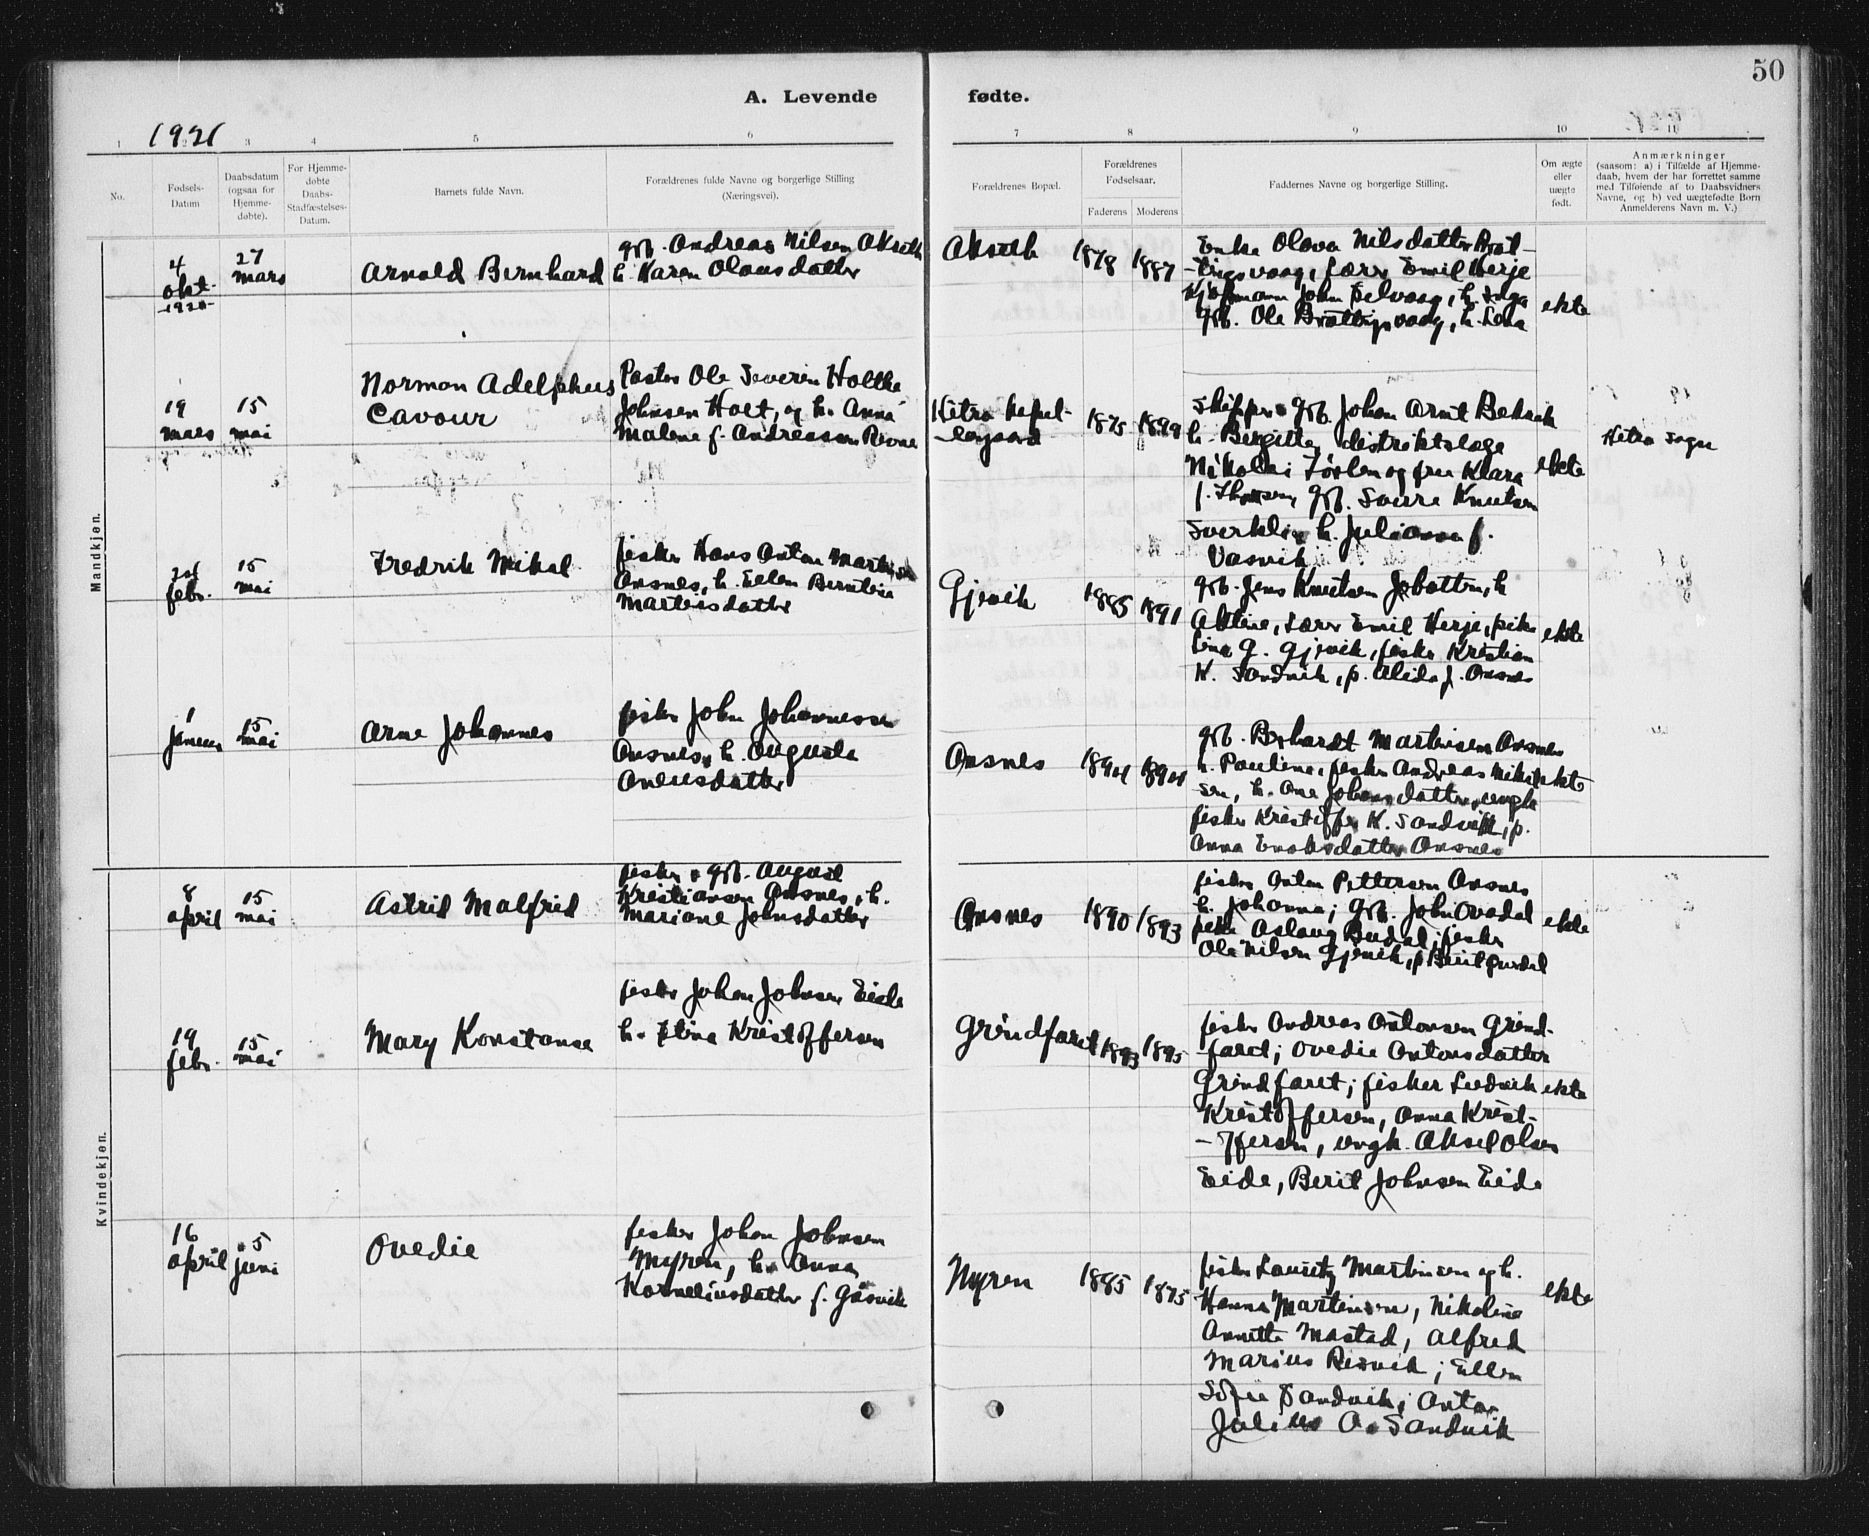 50
A. Levende fødte.
1921
1 2 3 4 5 6 7 8 9 10 11
No.
Fødsels-
Datum
Daabsdatum
(ogsaa for
Hjemme-
døbte).
For Hjemme-
døbte
Daabs-
Stadfæstelses-
Datum.
Barnets fulde Navn.
Forældrenes fulde Navne og borgerlige Stilling
(Næringsvei).
Forældrenes Bopæl.
Forældrenes
Fødselsaar.
Faderens Moderens
Faddernes Navne og borgerlige Stilling.
Om ægte
eller
uægte
født.
Anmærkninger
(saasom: a) i Tilfælde af Hjemme-
daab, hvem der har forrettet samme
med Tilføiende af to Daabsvidners
Navne, og b) ved uægtefødte Børn
Anmelderens Navn m. V.)
Mandkjøn.
4
okt.
1920
27
mars
Arnold Bernhard
gbr. Andreas Nilsen Akseth
h. Karen Olausdatter
Akseth
1878 1887
Enke Olava Nilsdatter Brat-
-tingsvaag, Lærer Emil Herje
Kjøbmann John Selvaag, h. Inga
gbr. Ole Brattingsvaag, h. Lena
ekte
19
mars
15
mai
Norman Adelphus
Cavour
Pastor Ole Severin Holthe
Johnsen Holt, og h. Anna
Malene f. Andreassen Revne
Hitra kapel-
-langaard
1875 1899
Skipper & gbr. Johan Arnt Beksvik
h. Bergitte, distriktslæge
Nikolai og frue Klara
f. Thomsen, gbr. Sverre Knutsen
h. Julianna f.
Vasvik
ekte
Hitra sogn
24
febr.
15
mai
Fredrik Mikal
fisker Hans Anton Martinsen
Ansnes, h. Ellen Berntine
Martinsdatter
Gjevik
1885 1891
gbr. Jens Knutsen Jøbotten, h.
Aktine, Lærer Emil Herje, pike
Lina G. Gjevik, fisker Kristian
K. Sandvik, p. Alida J. Ansnes
ekte
1
januar
15
mai
Arne Johannes
fisker John Johannessen
Ansnes, h. Augusta
Aneusdatter
Ansnes
1894 1894
gbr. Bernhardt Martinsen Ansnes
h. Pauline, fisker Andreas Mikal-
sen, h. Ane Johansdatter, ungk
fisker Kristoffer K. Sandvik, p.
Anna Enoksdatter Ansnes
ekte
Kvindekjøn.
8
april
15
mai
Astrid Malfrid
fisker & gbr. August
Kristiansen Ansnes, h.
Mariane Johnsdatter
Ansnes
1890 1893
fisker Anton Pettersen Ansnes
h. Johanna; gbr. John Ovedal
pike Aslaug Budal; fisker
Ole Nilsen Gjevik, p. Berit
ekte
19
febr.
15
mai
Mary Konstanse
fisker Johan Johnsen Eide
h. Stina Kristoffersen
Grindfaret
1893 1895
fisker Andreas Antonsen Grind-
-faret; Ovedie Antonsdatter
Grindfaret; fisker Ludvik
Kristoffersen, Anna Krist-
-offersen, ungk. Aksel Olsen
Eide, Berit Johnsen Eide
ekte
16
april
5
juni
Ovedie
fisker Johan Johnsen
Myren, h. Anna
Korneliusdatter f. Gåsvik
Myren
1885 1875
fisker Lauritz Martinsen og h.
Hanna Martinsen, Nikoline
Annette Mastad, Alfred
Marius Risvik; Ellen
Sofie Sandvik; Anton
Julius A. Sandvik
ekte